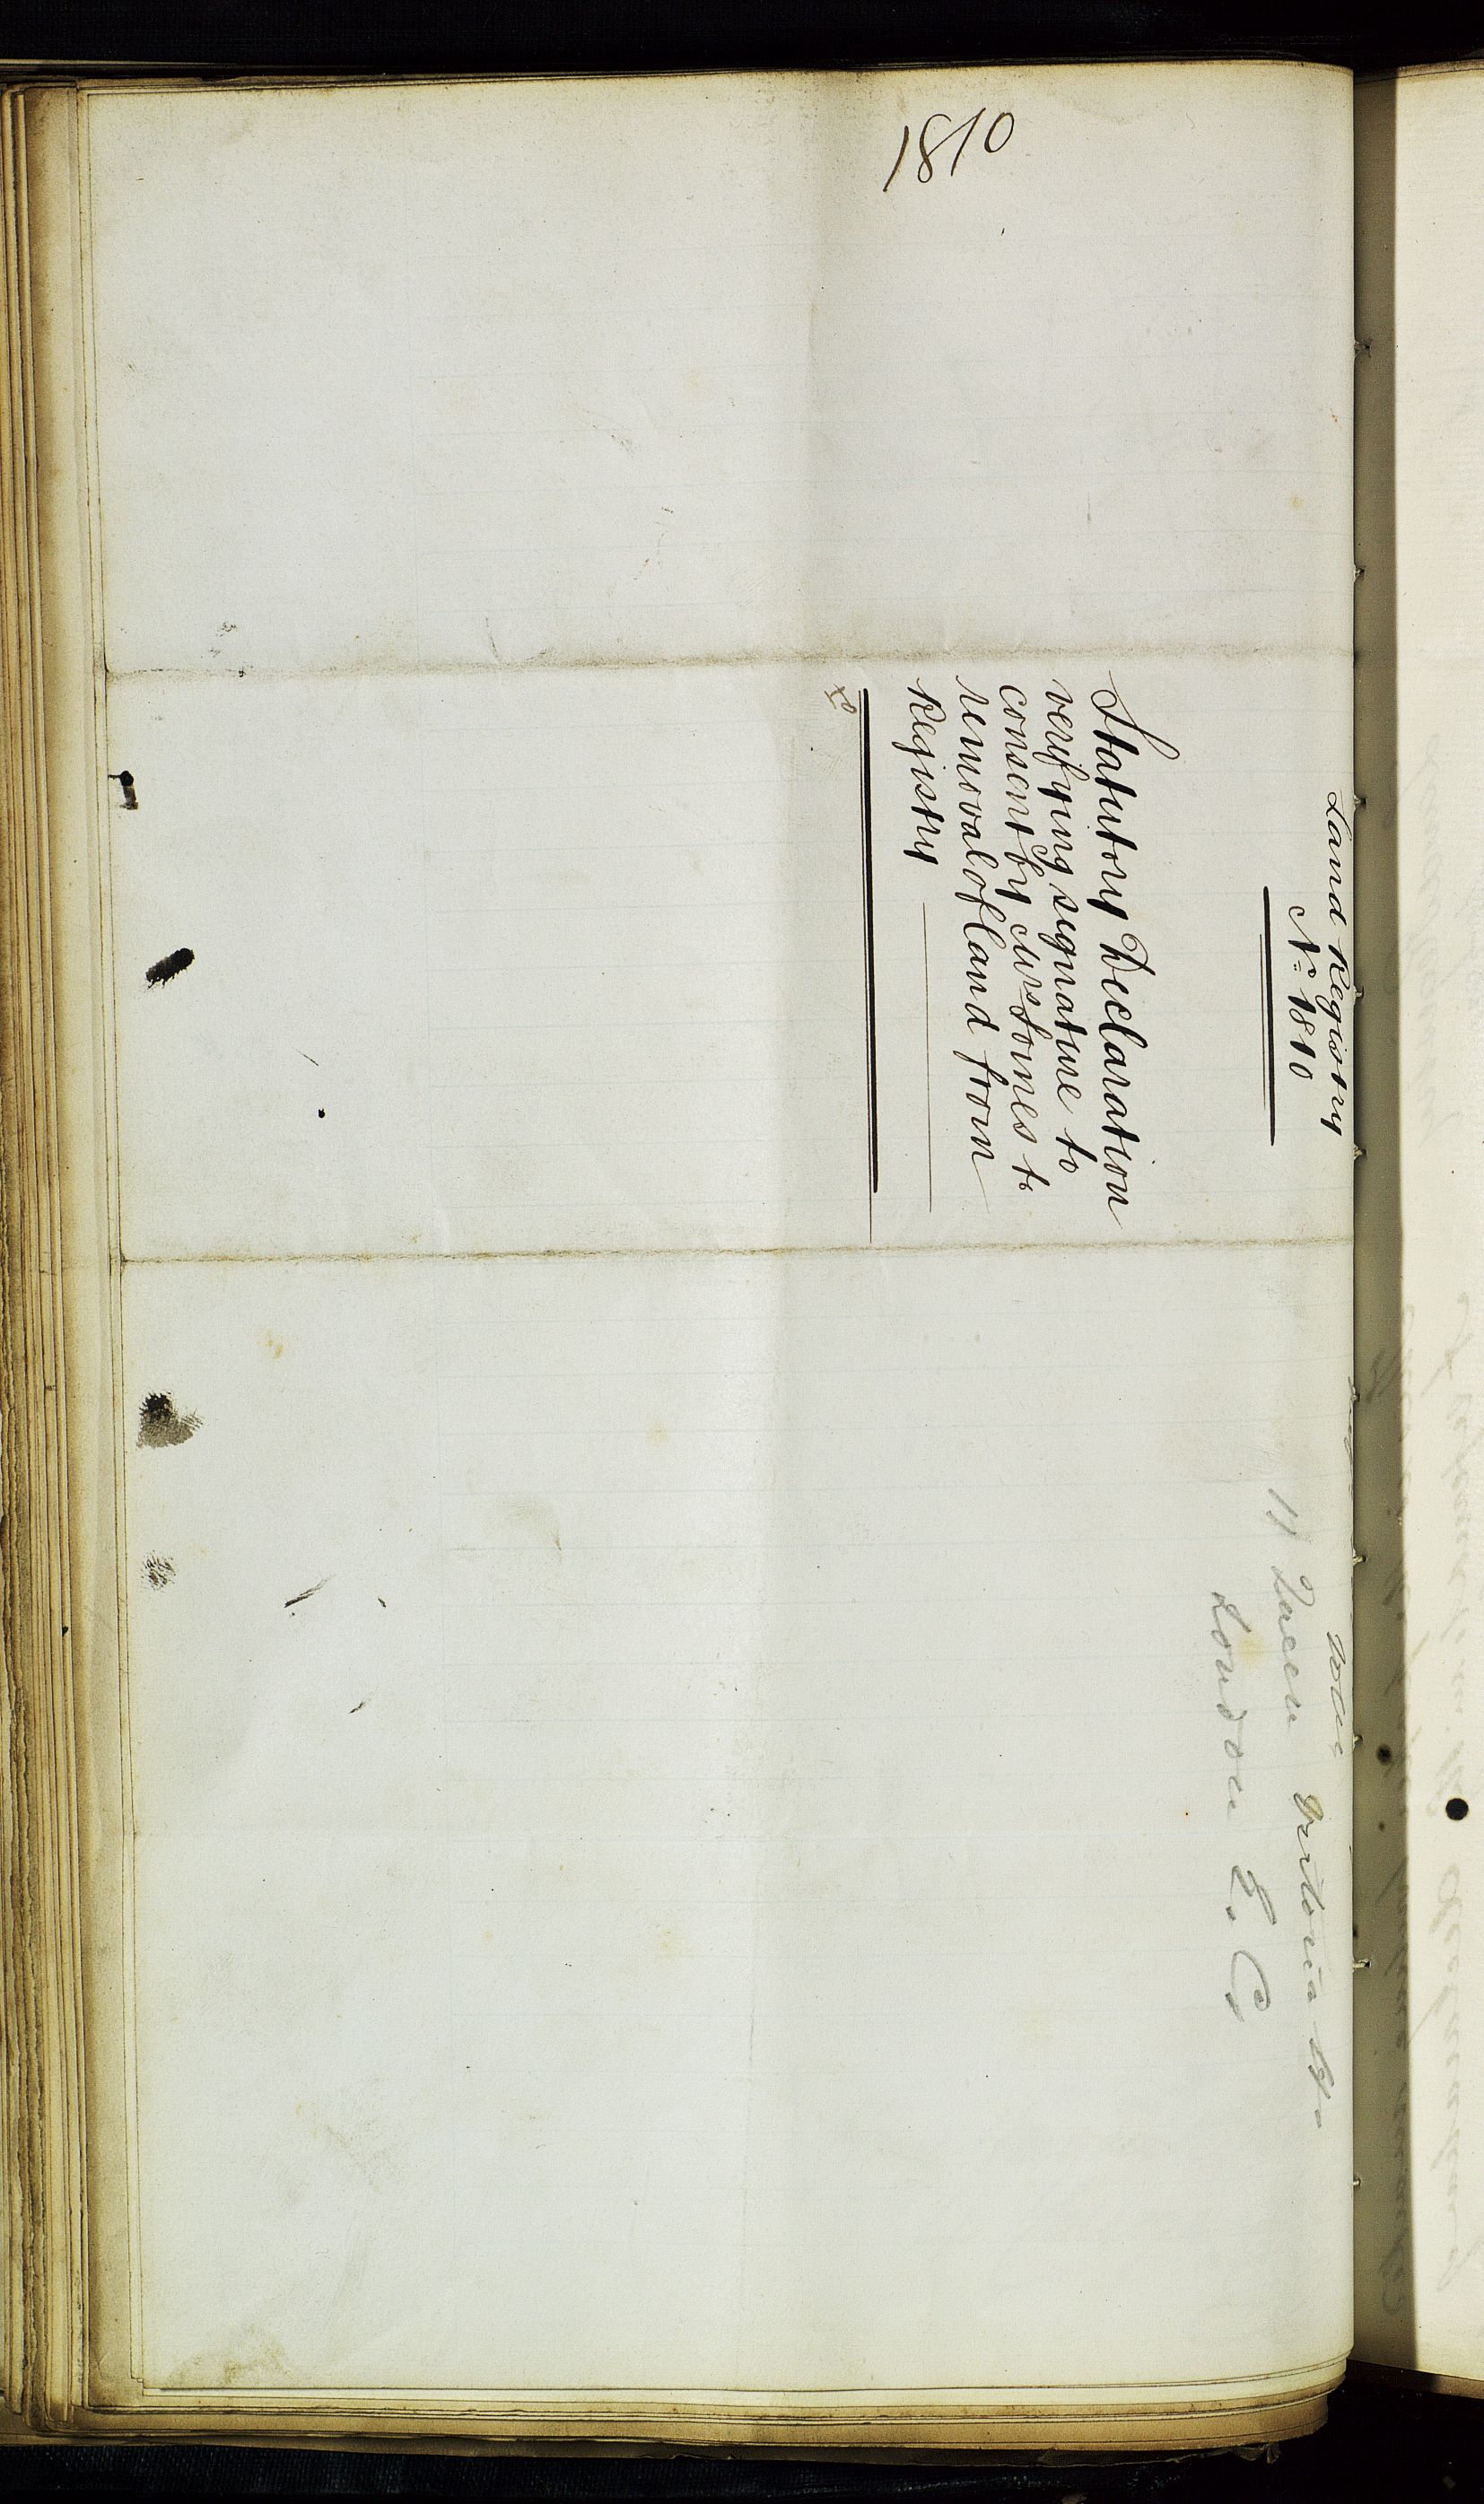 1810
Land Registry
No. 1810
Statutory Declaration
verifying signature to
consent by Mrs Somes to
removal of land from
Registry
11 Queen Victoria St
London E. C.